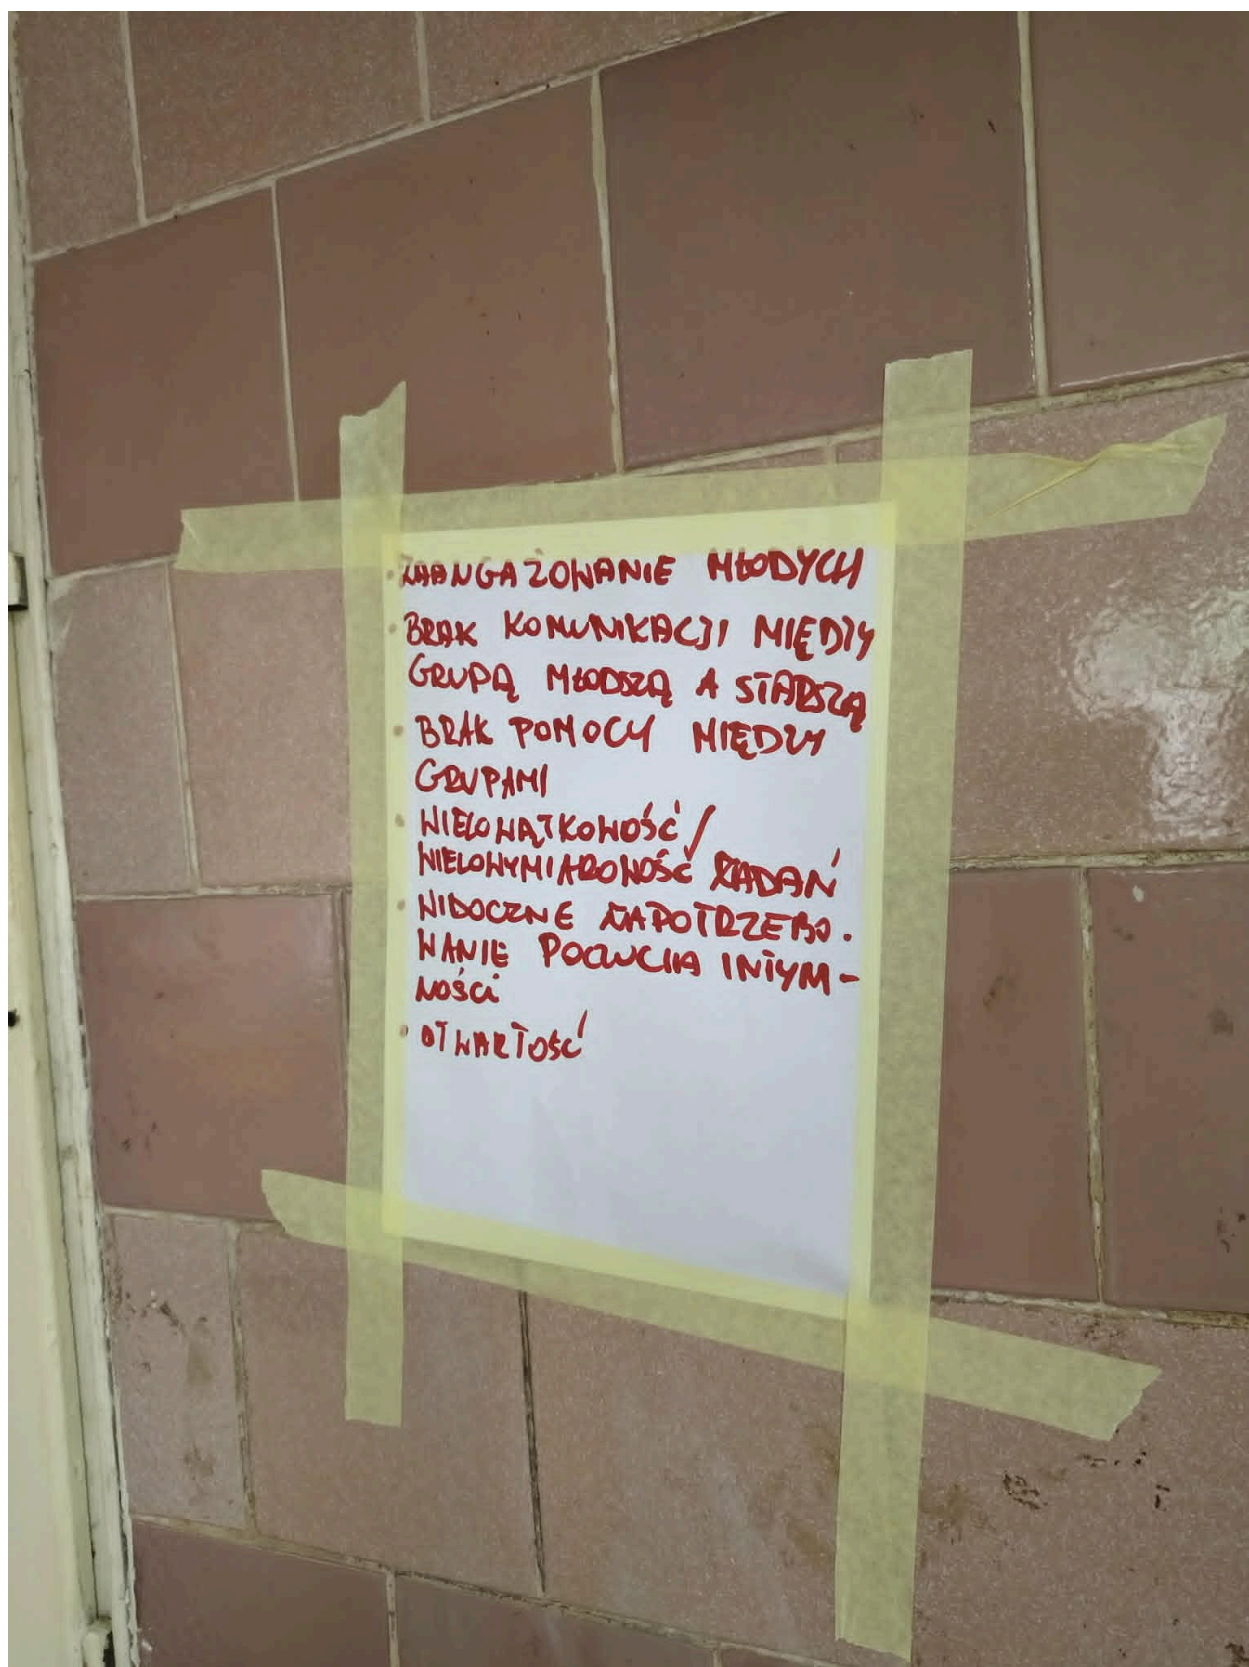 • ZAANGAŻOWANIE MŁODYCH
• BRAK KOMUNIKACJI MIĘDZY
GRUPĄ MŁODSZĄ A STARSZĄ
• BRAK POMOCY MIĘDZY
GRUPAMI
• WIELOWĄTKOWOŚĆ /
WIELOWYMIAROWOŚĆ ZADAŃ
• WIDOCZNE ZAPOTRZEBO-
WANIE POCZUCIA INTYM-
NOŚCI
• OTWARTOŚĆ